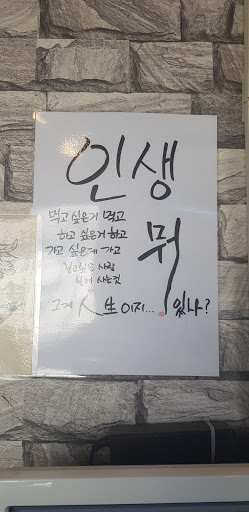 인생
먹고 싶은거 먹고
하고 싶은거 하고
가고 싶은데 가고
보고싶은 사람
보며 사는것
그게 人生이지... 뭐 있나?